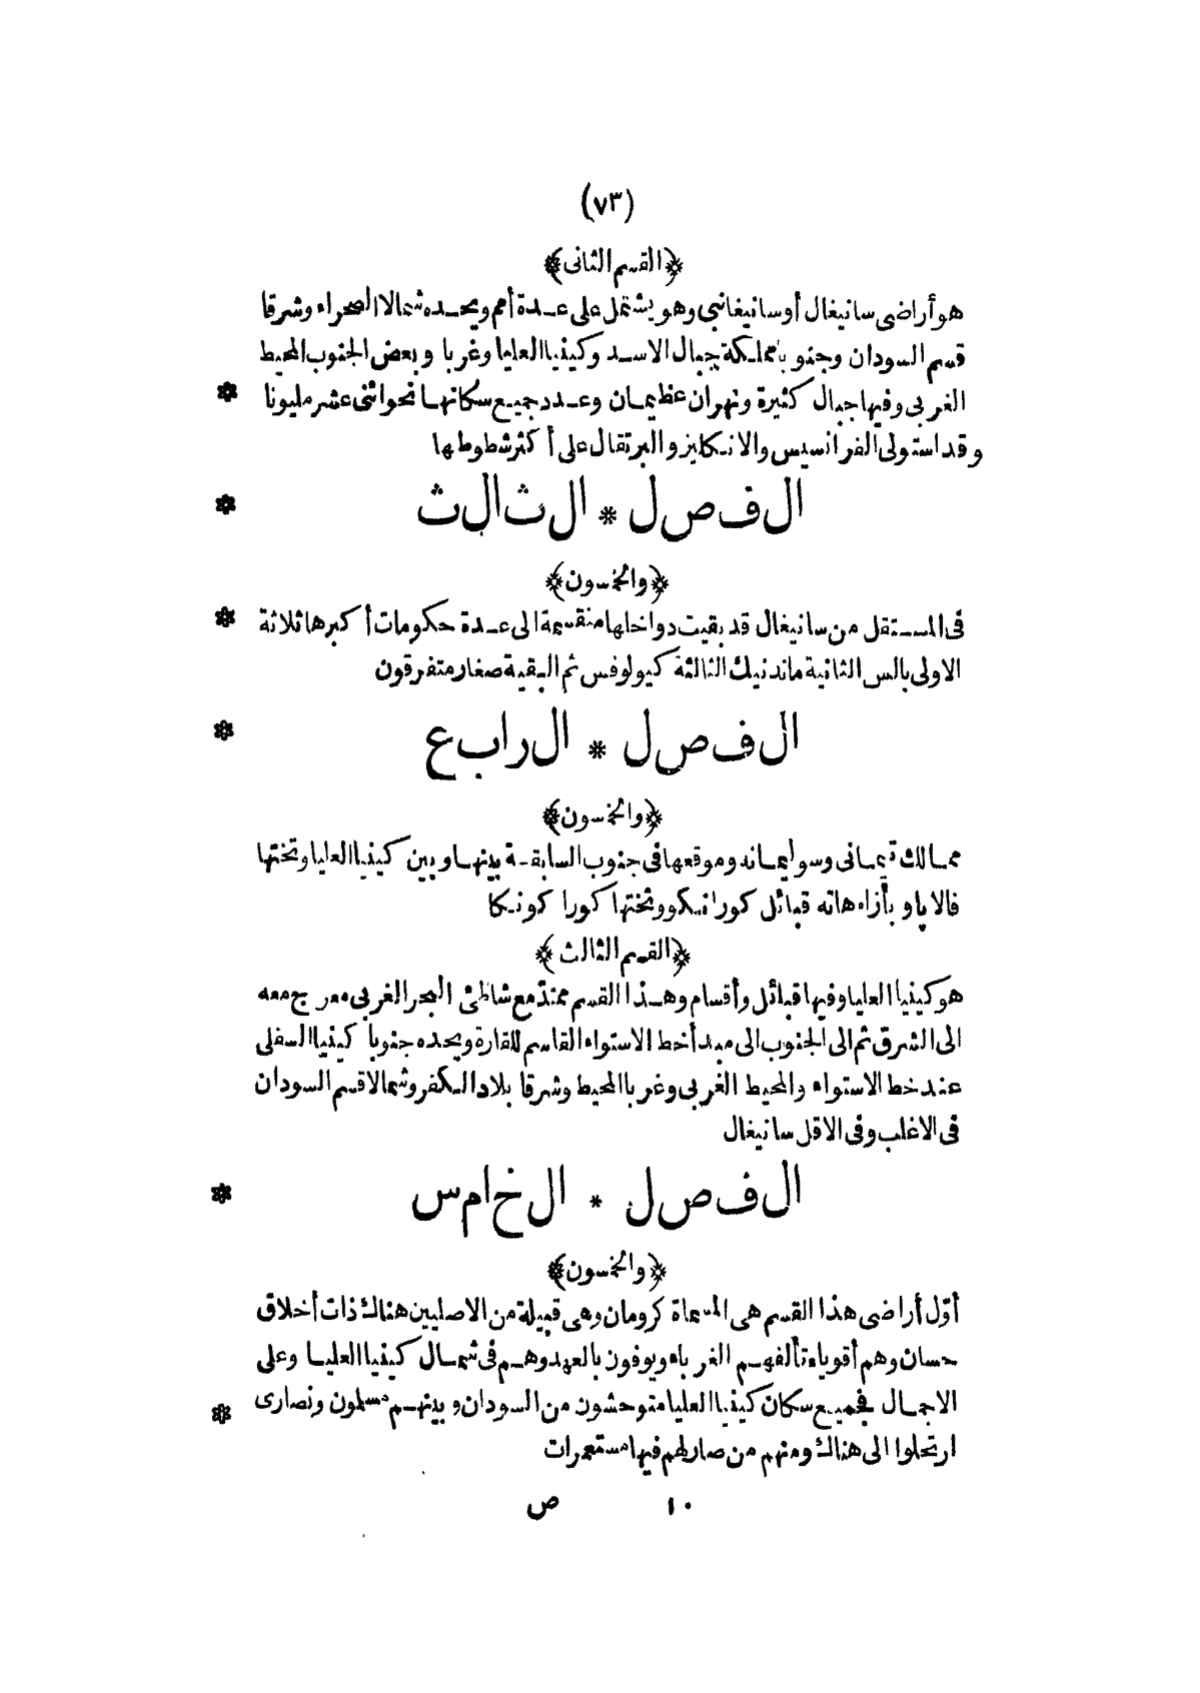 (٧٣)
﴿القسم الثانى﴾
هو أراضى سانيغال أو سانيغانبى وهو يشتمل على عدة أمم ويحده شمالا الصحراء وشرقا
قسم السودان وجنوبا مملكة جبال الاسد وكينيا العليا وغربا وبعض الجنوب المحيط
الغربى وفيها جبال كثيرة ونهران عظيمان وعدد جميع سكانها نحو اثنى عشر مليونا *
وقد استولى الفرانسيس والانكليز والبرتقال على أكثر شطوطها
الفصل * الثالث *
﴿والخمسون﴾
فى المستقل من سانيغال قد بقيت دواخلها منقسمة الى عدة حكومات أكبرها ثلاثة *
الاولى بالس الثانية ماندنيك الثالثة كيولوفس ثم البقية صغار متفرقون
الفصل * الرابع *
﴿والخمسون﴾
ممالك تيمانى وسوليمانه وموقعها فى جنوب السابقة بينها وبين كينيا العليا وتختها
فالابا وبأزاء هاته قبائل كورانكو وتختها كورا كونكا
﴿القسم الثالث﴾
هو كينيا العليا وفيها قبائل وأقسام وهذا القسم ممتد مع شاطئ البحر الغربى معرج معه
الى الشرق ثم الى الجنوب الى مبدأ خط الاستواء القاسم للقارة ويحده جنوبا كينيا السفلى
عند خط الاستواء والمحيط الغربى وغربا المحيط وشرقا بلاد الكفر وشمالا قسم السودان
فى الاغلب وفى الاقل سانيغال
الفصل * الخامس *
﴿والخمسون﴾
أوّل أراضى هذا القسم هى المسماة كرومان وهى قبيلة من الاصليين هناك ذات أخلاق
حسان وهم أقوياء تألفهم الغرباء ويوفون بالعهد وهم فى شمال كينيا العليا وعلى
الاجمال فجميع سكان كينيا العليا متوحشون من السودان وبينهم مسلمون ونصارى *
ارتحلوا الى هناك ومنهم من صار لهم فيها مستعمرات
١٠ ص